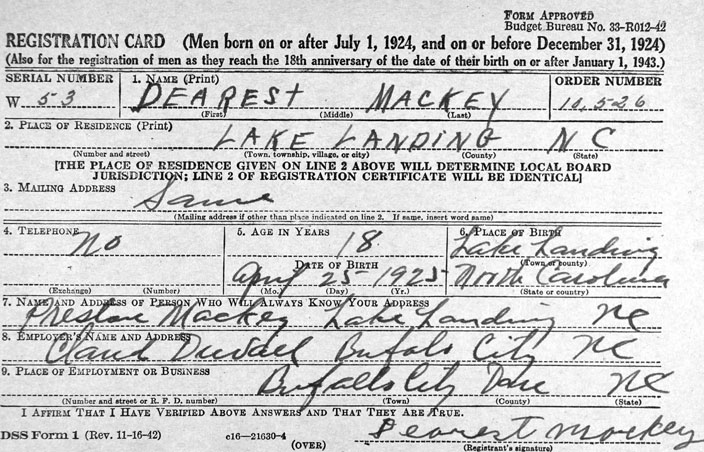 FORM APPROVED
Budget Bureau No. 33-R012-42
REGISTRATION CARD (Men born on or after July 1, 1924, and on or before December 31, 1924)
(Also for the registration of men as they reach the 18th anniversary of the date of their birth on or after January 1, 1943.)
SERIAL NUMBER 1. NAME (Print) ORDER NUMBER
W 53 DEAREST MACKEY 10,526
(First) (Middle) (Last)
2. PLACE OF RESIDENCE (Print)
LAKE LANDING N C
(Number and street) (Town, township, village, or city) (County) (State)
[THE PLACE OF RESIDENCE GIVEN ON LINE 2 ABOVE WILL DETERMINE LOCAL BOARD
JURISDICTION; LINE 2 OF REGISTRATION CERTIFICATE WILL BE IDENTICAL]
3. MAILING ADDRESS
Same
(Mailing address if other than place indicated on line 2. If same, insert word same)
4. TELEPHONE 5. AGE IN YEARS 6. PLACE OF BIRTH
No 18 Lake Landing
DATE OF BIRTH (Town or county)
April 25 - 1925 North Carolina
(Exchange) (Number) (Mo.) (Day) (Yr.) (State or country)
7. NAME AND ADDRESS OF PERSON WHO WILL ALWAYS KNOW YOUR ADDRESS
Preston Mackey Lake Landing NC
8. EMPLOYER'S NAME AND ADDRESS
Claud Duvall Bufalo City NC
9. PLACE OF EMPLOYMENT OR BUSINESS
Bufallo City Dare NC
(Number and street or R. F. D. number) (Town) (County) (State)
I AFFIRM THAT I HAVE VERIFIED ABOVE ANSWERS AND THAT THEY ARE TRUE.
DSS Form 1 (Rev. 11-16-42) c16-21630-4 Dearest Mackey
(OVER) (Registrant's signature)